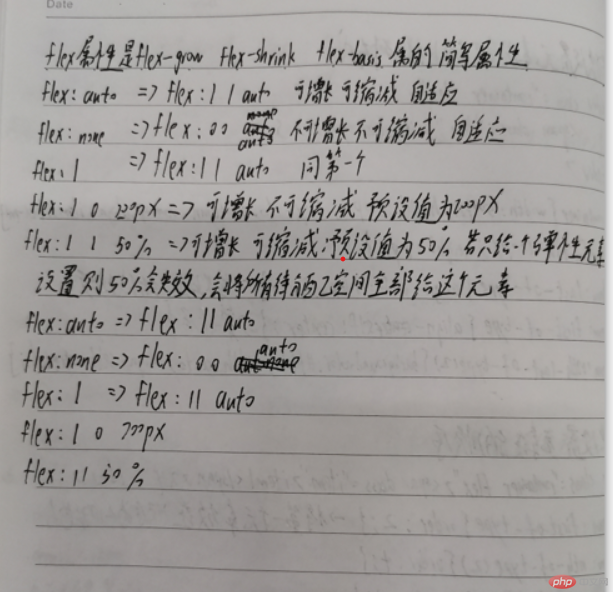 Date
flex属性是flex-grow flex-shrink flex-basis 属的简写属性
flex: auto => flex: 1 1 auto 可增长可缩减 自适应
flex: none => flex: 0 0 auto 不可增长不可缩减 自适应
flex: 1 => flex: 1 1 auto 同第一个
flex: 1 0 200px => 可增长 不可缩减 预设值为200px
flex: 1 1 50% => 可增长 可缩减.预设值为50% 若只给一个单个元素
设置则50%会失效,会将所有待分配空间全部给这个元素
flex: auto => flex: 1 1 auto
flex: none => flex: 0 0 auto
flex: 1 => flex: 1 1 auto
flex: 1 0 200px
flex: 1 1 50%
php